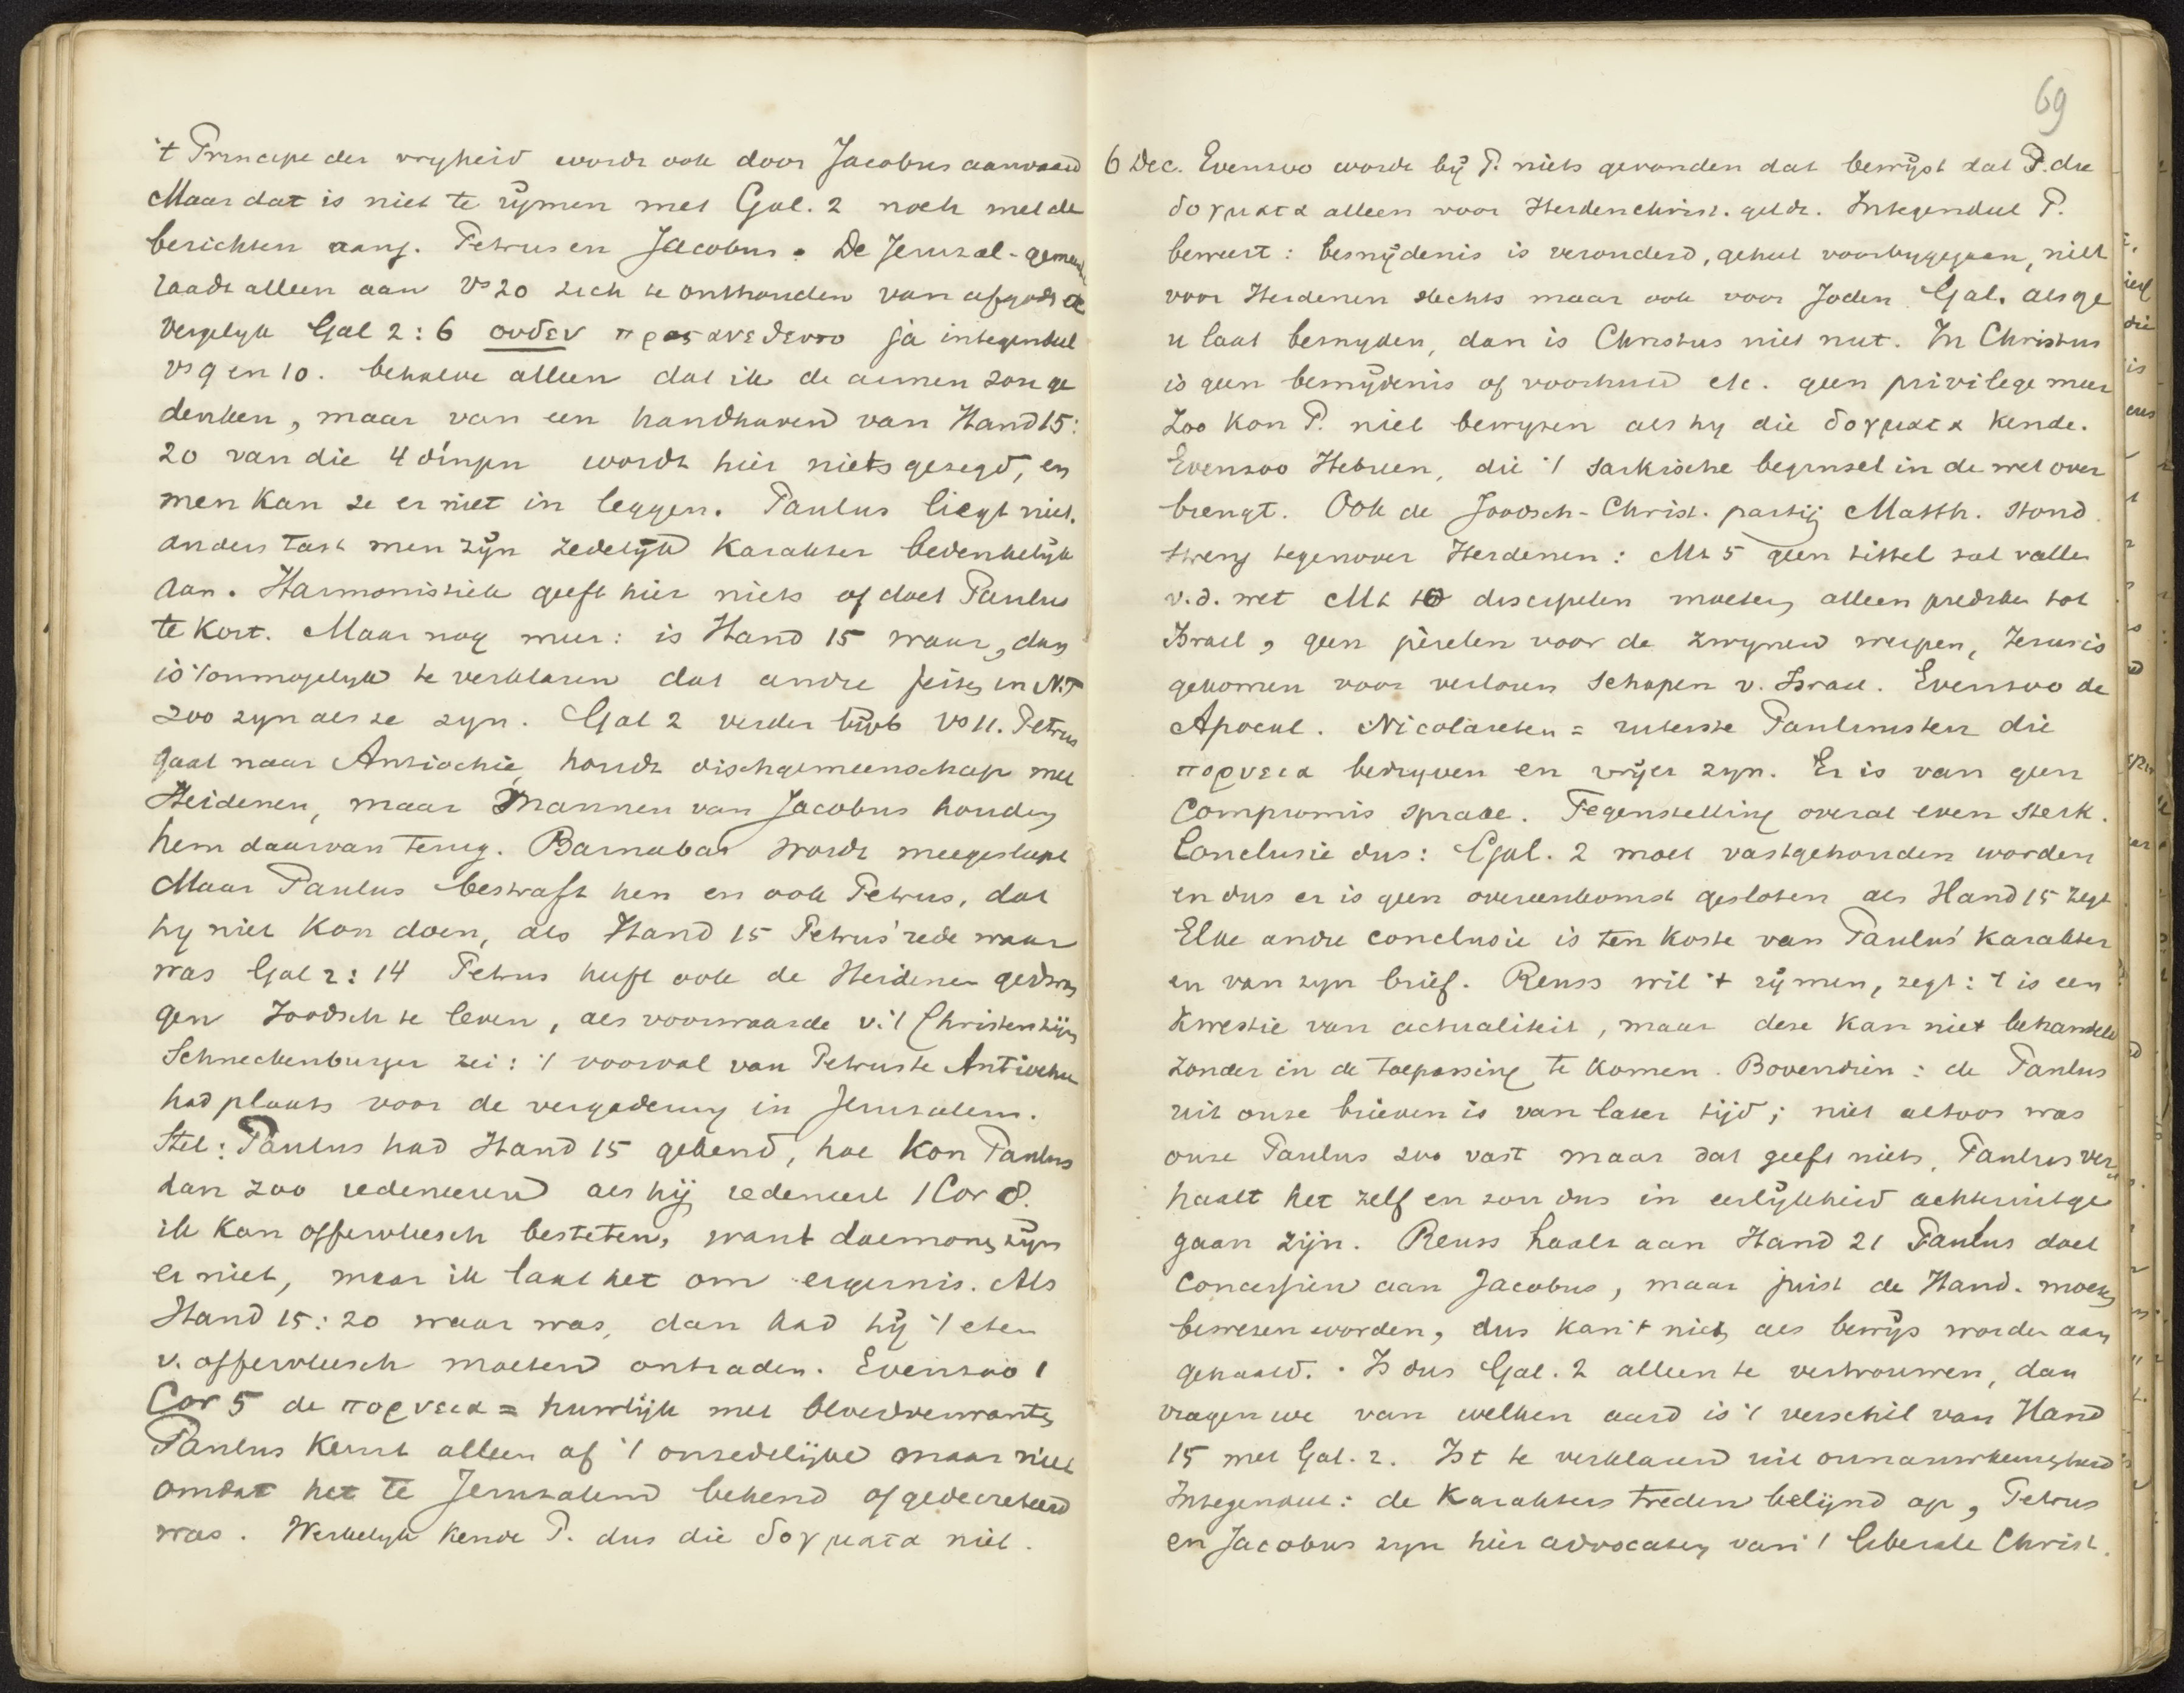 't Principe der vryheid wordt ook door Jacobus aanvaard
Maar dat is niet te rijmen met Gal. 2 noch met de
berichten aang. Petrus en Jacobus. De Jeruzal-gemeente
raadt alleen aan vs 20 zich te onthouden van afgods &
Vergelyk Gal 2:6 ουδεν προσανεθεντο ja integendeel
vs 9 en 10. behalve alleen dat ik de armen zou ge
denken, maar van een handhaven van Hand 15:
20 van die 4 dingen wordt hier niets gezegd, en
men kan ze er niet in leggen. Paulus liegt niet.
anders tast men zijn zedelijk karakter bedenkelijk
aan. Harmonistiek geeft hier niets of doet Paulus
te kort. Maar nog meer: is Hand 15 waar, dan
is 't onmogelyk te verklaren dat andre feiten in N.T
zoo zyn als ze zyn. Gal 2 verder blijkt vs 11. Petrus
gaat naar Antiochie, houdt dischgemeenschap met
Heidenen, maar Mannen van Jacobus houden
hem daarvan terug. Barnabas wordt meegesleept
Maar Paulus bestraft hen en ook Petrus, dat
hy niet kon doen, als Hand 15 Petrus' rede waar
was Gal 2:14 Petrus heeft ook de Heidenen gedwon
gen Joodsch te leven, als voorwaarde v. 't Christen zijn
Schneckenburger zei: 't voorval van Petrus te Antiochie
had plaats voor de vergadering in Jeruzalem.
Stel: Paulus had Hand 15 gekend, hoe kon Paulus
dan zoo redeneeren als hij redeneert 1 Cor 8.
ik kan offervleesch besteten, want daemonen zijn
er niet, maar ik laat het om ergernis. Als
Hand 15:20 waar was, dan had hij 't eten
v. offervleesch moeten ontraden. Evenzoo 1
Cor 5 de πορνεια = huwlijk met bloedverwanten
Paulus keurt alleen af 't onzedelijke maar niet
omdat het te Jeruzalem bekend of gedecreteerd
was. Werkelyk kende P. dus die δογματα niet.
69
6 Dec. Evenzoo wordt bij P. niets gevonden dat bewijst dat P. die
δογματα alleen voor Heidenchrist. geldt. Integendeel P.
beweert: besnijdenis is verouderd, geheel voorbygegaan, niet
voor Heidenen slechts maar ook voor Joden Gal. als ge
u laat besnyden, dan is Christus niet nut. In Christus
is geen besnijdenis of voorhuid etc. geen privilege meer
Zoo kon P. niet bewyzen als hy die δογματα kende.
Evenzoo Hebreen, die 't sarkische beginsel in de wet over
brengt. Ook de Joodsch-Christ. partij Matth. stond
streng tegenover Heidenen: Mt 5 geen tittel zal vallen
v. d. wet Mt 10 discipelen moeten alleen prediken tot
Israel, geen pèrelen voor de zwynen werpen, Jezus is
gekomen voor verloren schapen v. Israel. Evenzoo de
Apocal. Nicolaieten = uiterste Paulinisten die
πορνεια bedryven en vrijer zyn. Er is van geen
Compromis sprake. Tegenstelling overal even sterk.
Conclusie dus: Gal. 2 moet vastgehouden worden
en dus er is geen overeenkomst gesloten als Hand 15 zegt
Elke andre conclusie is ten koste van Paulus' karakter
en van zyn brief. Reuss wil 't rijmen, zegt: 't is een
kwestie van actualiteit, maar deze kan niet behandeld
zonder in de toepassing te komen. Bovendien: de Paulus
uit onze brieven is van later tijd; niet altoos was
onze Paulus zoo vast maar dat geeft niets, Paulus ver
haalt het zelf en zou dus in eerlijkheid achteruitge
gaan zijn. Reuss haalt aan Hand 21 Paulus doet
concessien aan Jacobus, maar juist de Hand. moeten
bewezen worden, dus kan 't niet als bewijs worden aan
gehaald. Is dus Gal. 2 alleen te vertrouwen, dan
vragen we van welken aard is 't verschil van Hand
15 met Gal. 2. Is t te verklaren uit onnauwkeurigheid
Integendeel: de karakters treden belijnd op, Petrus
en Jacobus zyn hier advocaten van 't liberale Christ.